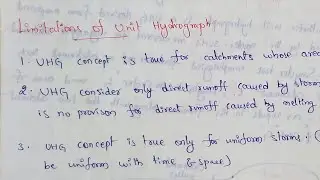 Limitations of Unit Hydrograph
1. UHG concept is true for catchments whose area
2. UHG consider only direct runoff caused by storm
is no provison for direct runoff caused by melting
3. UHG concept is true only for uniform storms. (
be uniform with time & space)